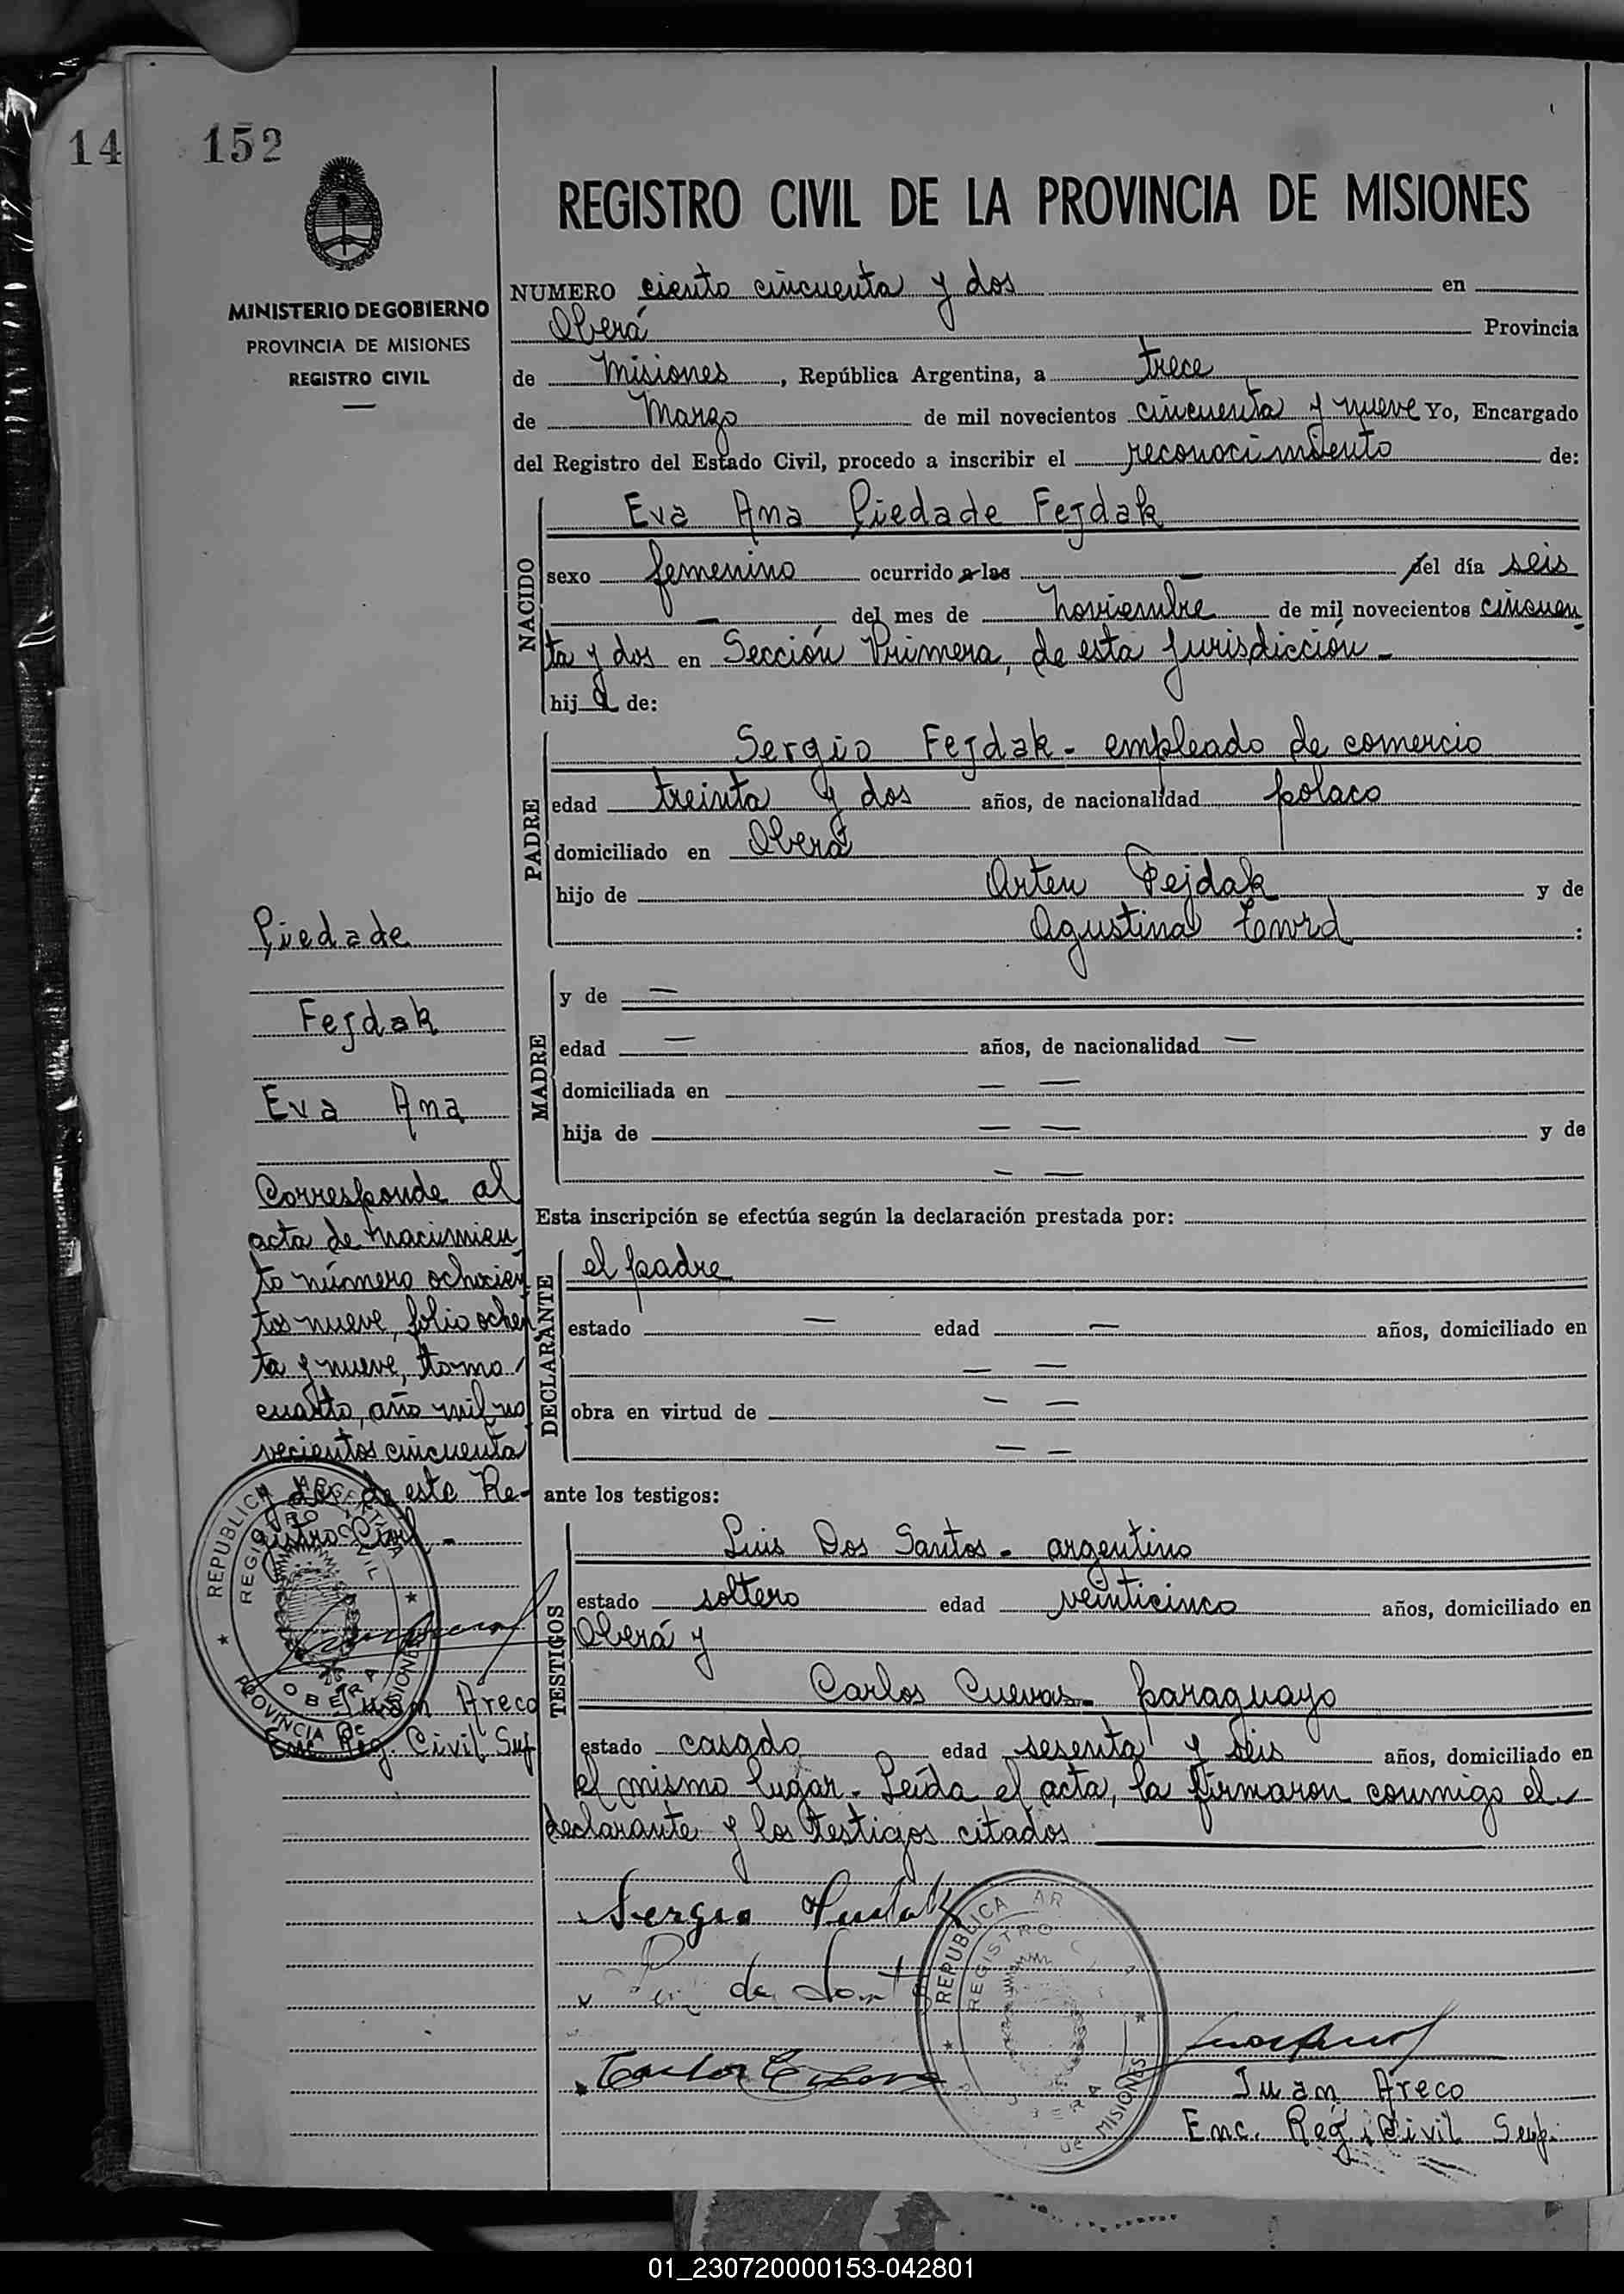 14 152
REGISTRO CIVIL DE LA PROVINCIA DE MISIONES
MINISTERIO DE GOBIERNO
PROVINCIA DE MISIONES
REGISTRO CIVIL
NUMERO ciento cincuenta y dos en
Oberá Provincia
de Misiones, República Argentina, a trece
de Marzo de mil novecientos cincuenta y nueve Yo, Encargado
del Registro del Estado Civil, procedo a inscribir el reconocimiento de:
NACIDO
Eva Ana Piedade Fejdak
sexo femenino ocurrido a las — del día seis
— del mes de noviembre de mil novecientos cincuen
ta y dos en Sección Primera, de esta jurisdicción -
hija de:
PADRE
Sergio Fejdak - empleado de comercio
edad treinta y dos años, de nacionalidad polaco
domiciliado en Oberá
hijo de Arten Fejdak y de
Agustina :
MADRE
y de —
edad — años, de nacionalidad —
domiciliada en — —
hija de — — y de
— —
Esta inscripción se efectúa según la declaración prestada por:
DECLARANTE
el padre
estado — edad — años, domiciliado en
— —
obra en virtud de — —
— —
ante los testigos:
TESTIGOS
Luis Dos Santos - argentino
estado soltero edad veinticinco años, domiciliado en
Oberá y
Carlos Cuevas - paraguayo
estado casado edad sesenta y seis años, domiciliado en
el mismo lugar - Leída el acta, la firmaron conmigo el
declarante y los testigos citados
Sergio
Juan Areco
Enc. Reg. Civil Sup.
Piedade
Fejdak
Eva Ana
Corresponde al
acta de nacimien
to número ochocien
tos nueve, folio ochen
ta y nueve, tomo
cuarto, año mil no
vecientos cincuenta
y dos de este Re-
gistro Civil -
REPUBLICA ARGENTINA
REGISTRO CIVIL
OBERA
PROVINCIA DE MISIONES
Juan Areco
Enc. Reg. Civil Sup
REPUBLICA AR
REGISTRO C
OBERA
DE MISIONES
01_230720000153-042801